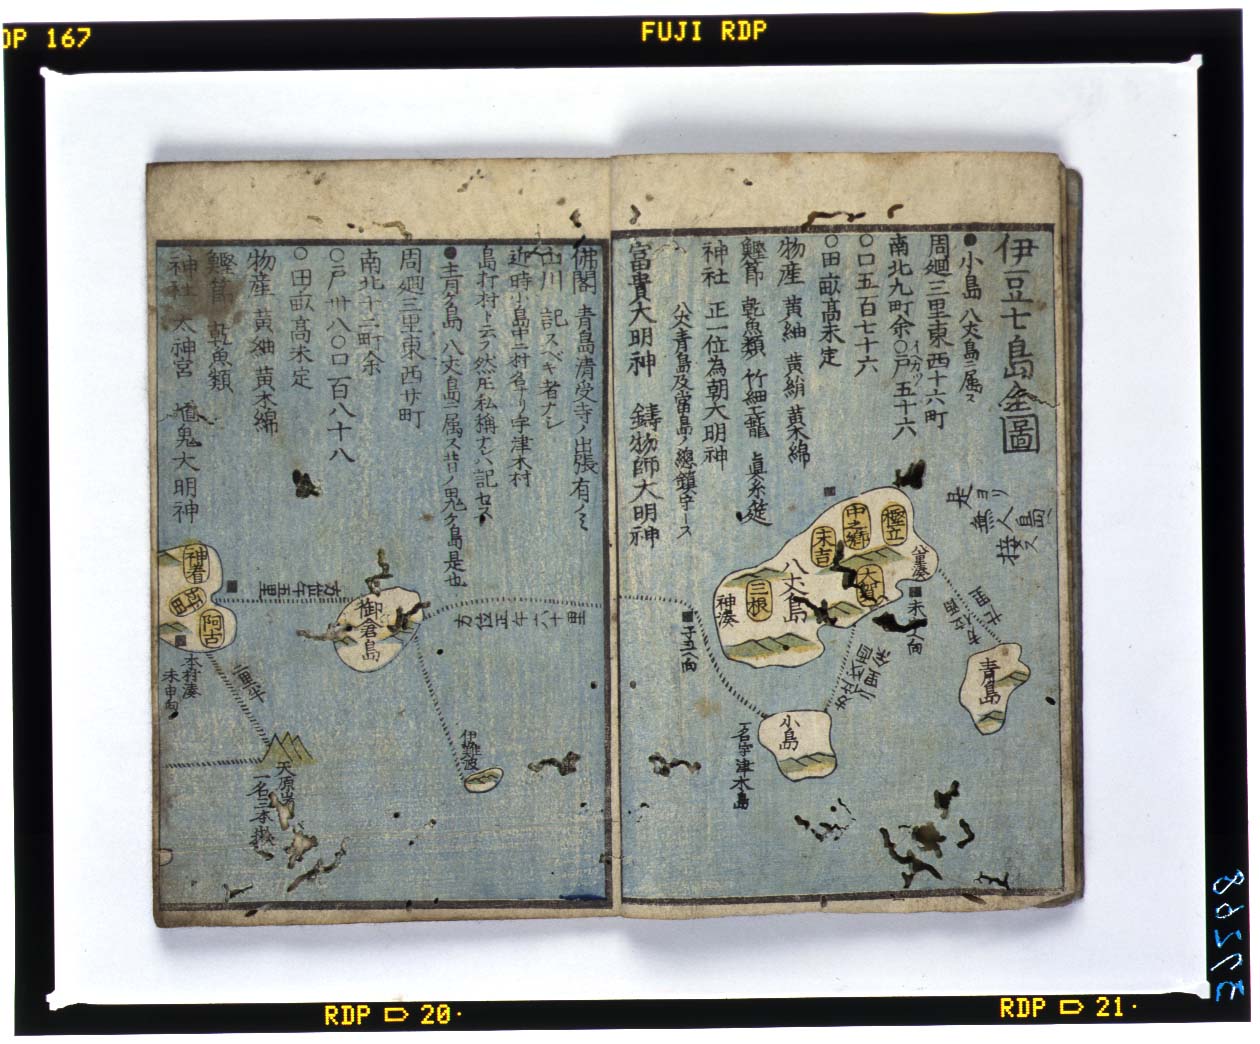 DP 167
FUJI RDP
伊豆七島全圖
是ヨリ
無人島ニ
接ス
●小島 八丈島ニ属ス
周廻三里東西十六町
南北九町余○戸五十六
○口五百七十六
○田畝髙未定
物産 黄紬 黄絹 黄木綿
鰹節 乾魚類 竹細工籠 真糸筵
神社 正一位為朝大明神
八丈青島及當島ノ總鎮守ース
富貴大明神 鋳物師大明神
樫立
中之郷
末吉
大賀
三根
八丈島
神湊
八重湊
未ノ向
子丑ノ向
青島
小島
一名宇津木島
佛閣 青島清受寺ノ出張有ノミ
山川 記スベキ者ナシ
近時小島中ニ村名アリ宇津木村
島打村ト云フ然𪜈私稱ナレバ記セズ
●青ケ島 八丈島ニ属ス昔ノ鬼ケ島是也
周廻三里東西廿町
南北十二町余
○戸卅八○口百八十八
○田畝髙未定
物産 黄紬 黄木綿
鰹節 乾魚類
神社 太神宮 鬼大明神
方位正午六十里
御倉島
伊難波
神着
阿古
本村湊
未申向
二里半
大原山
一名三本嶽
RDP 20
RDP 21